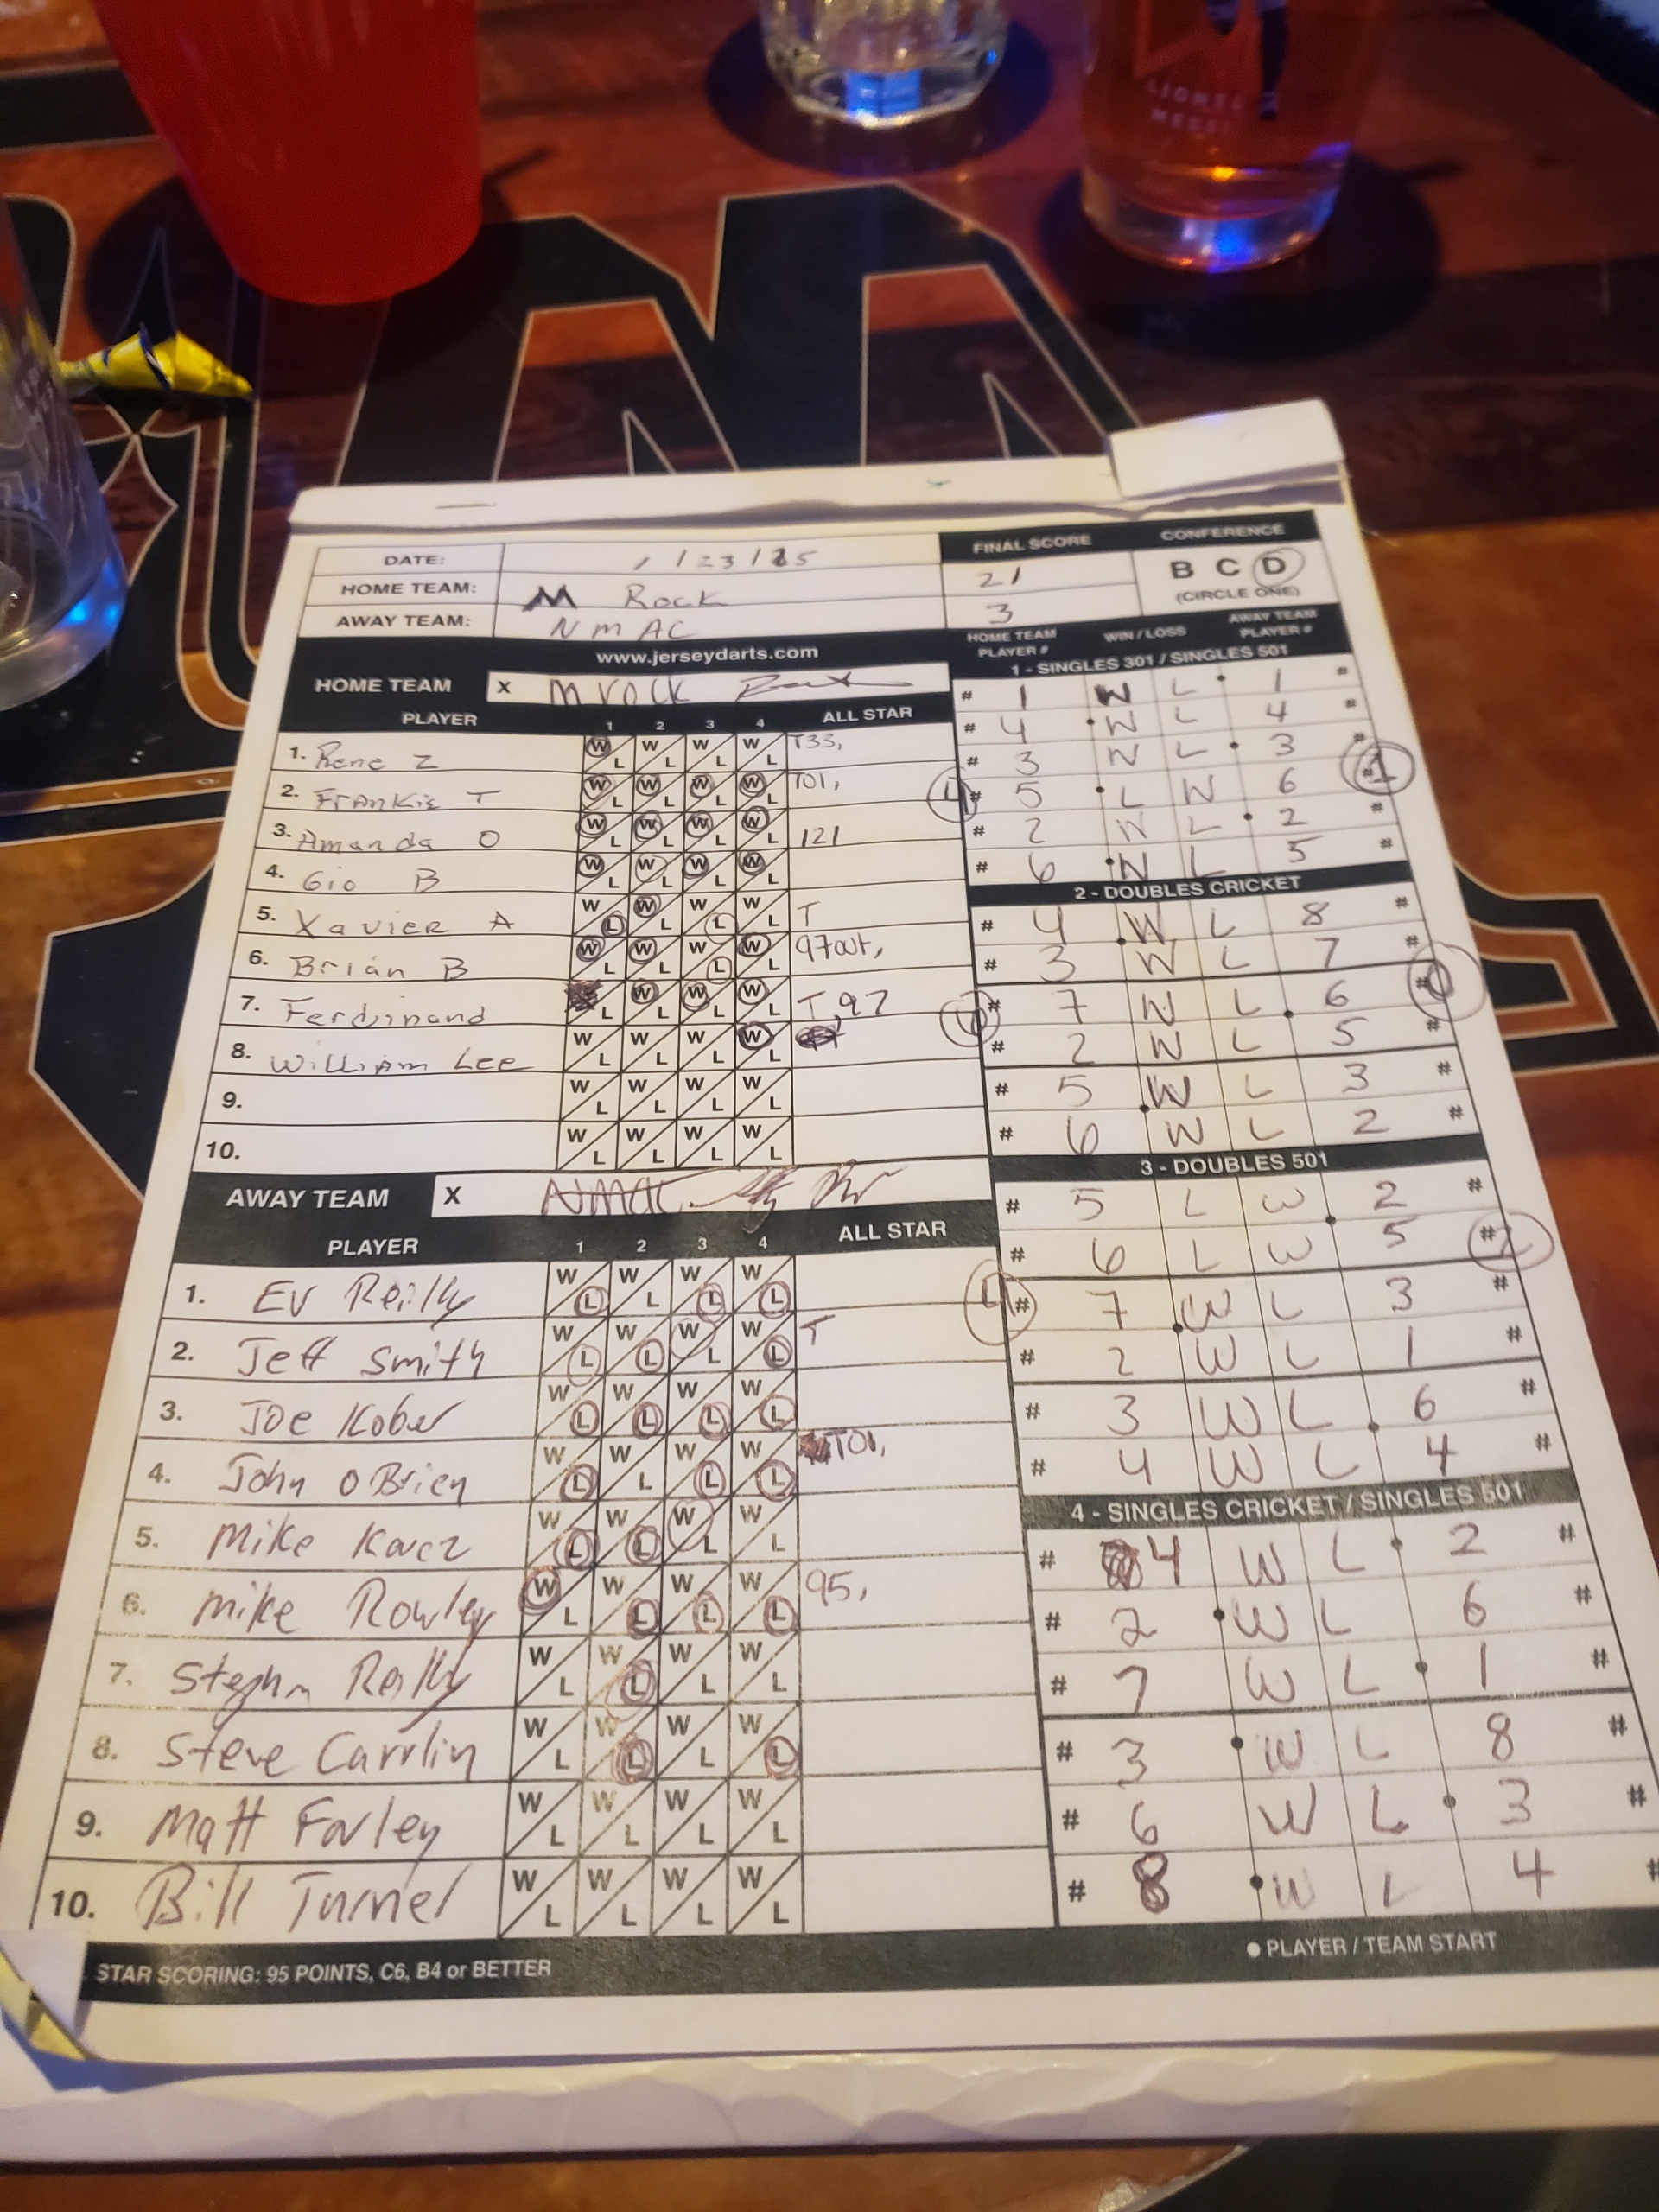 LIONEL
MESSI
DATE: 1/23/25
HOME TEAM: M Rock
AWAY TEAM: NMAC
FINAL SCORE
21
3
CONFERENCE
B C D
(CIRCLE ONE)
www.jerseydarts.com
HOME TEAM X M rock
PLAYER 1 2 3 4 ALL STAR
1. Rene Z W L W L W L W L T33,
2. Frankie T W L W L W L W L T01,
3. Amanda O W L W L W L W L 121
4. Gio B W L W L W L W L
5. Xavier A W L W L W L W L T
6. Brian B W L W L W L W L 97out,
7. Ferdinand L W L W L W L T, 97
8. William Lee W L W L W L W L
9. W L W L W L W L
10. W L W L W L W L
AWAY TEAM X NMAC
PLAYER 1 2 3 4 ALL STAR
1. Ev Reilly W L W L W L W L
2. Jeff Smith W L W L W L W L T
3. Joe Kober W L W L W L W L
4. John OBrien W L W L W L W L T01,
5. Mike Karcz W L W L W L W L
6. Mike Rowley W L W L W L W L 95,
7. W L W L W L W L
8. Steve Carrlin W L W L W L W L
9. Matt Farley W L W L W L W L
10. Bill Turner W L W L W L W L
STAR SCORING: 95 POINTS, C6, B4 or BETTER
HOME TEAM PLAYER # WIN / LOSS AWAY TEAM PLAYER #
1 - SINGLES 301 / SINGLES 501
# 1 W L 1 #
# 4 W L 4 #
# 3 W L 3 #
# 5 L W 6 # 1
# 2 W L 2 #
# 6 W L 5 #
2 - DOUBLES CRICKET
# 4 W L 8 #
# 3 W L 7 #
# 7 W L 6 # 0
# 2 W L 5 #
# 5 W L 3 #
# 6 W L 2 #
3 - DOUBLES 501
# 5 L W 2 #
# 6 L W 5 # 2
4 # 7 W L 3 #
# 2 W L 1 #
# 3 W L 6 #
# 4 W L 4 #
4 - SINGLES CRICKET / SINGLES 501
# 4 W L 2 #
# 2 W L 6 #
# 7 W L 1 #
# 3 W L 8 #
# 6 W L 3 #
# 8 W L 4 #
● PLAYER / TEAM START